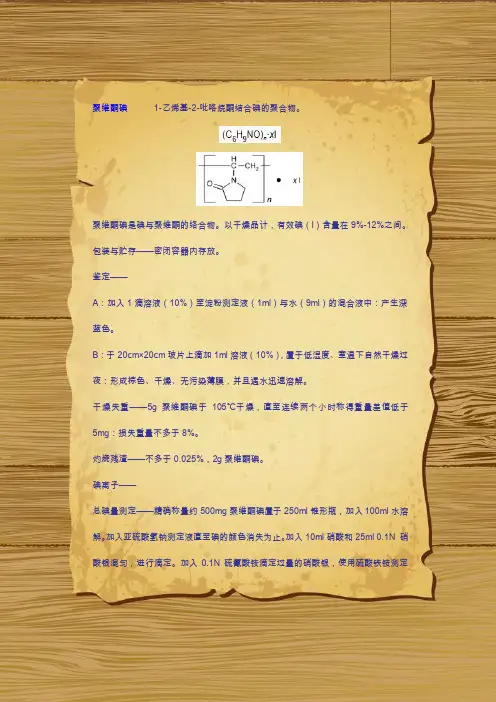 聚维酮碘 1-乙烯基-2-吡咯烷酮结合碘的聚合物。
(C6H9NO)n·xI
H
C CH2
N
O
n
• x I
聚维酮碘是碘与聚维酮的络合物。以干燥品计，有效碘（I）含量在9%-12%之间。
包装与贮存——密闭容器内存放。
鉴定——
A：加入1滴溶液（10%）至淀粉测定液（1ml）与水（9ml）的混合液中：产生深
蓝色。
B：于20cm×20cm玻片上滴加1ml溶液（10%），置于低湿度、室温下自然干燥过
夜：形成棕色、干燥、无污染薄膜，并且遇水迅速溶解。
干燥失重——5g聚维酮碘于105℃干燥，直至连续两个小时称得重量差值低于
5mg：损失重量不多于8%。
灼烧残渣——不多于0.025%，2g聚维酮碘。
碘离子——
总碘量测定——精确称量约500mg聚维酮碘置于250ml锥形瓶，加入100ml水溶
解。加入亚硫酸氢钠测定液直至碘的颜色消失为止。加入10ml硝酸和25ml 0.1N 硝
酸银混匀，进行滴定。加入0.1N 硫氰酸铵滴定过量的硝酸银，使用硫酸铁铵测定